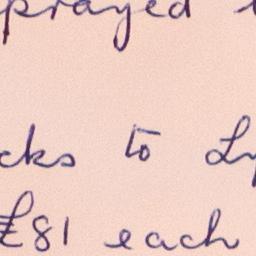 prayed
cks to
£81 each